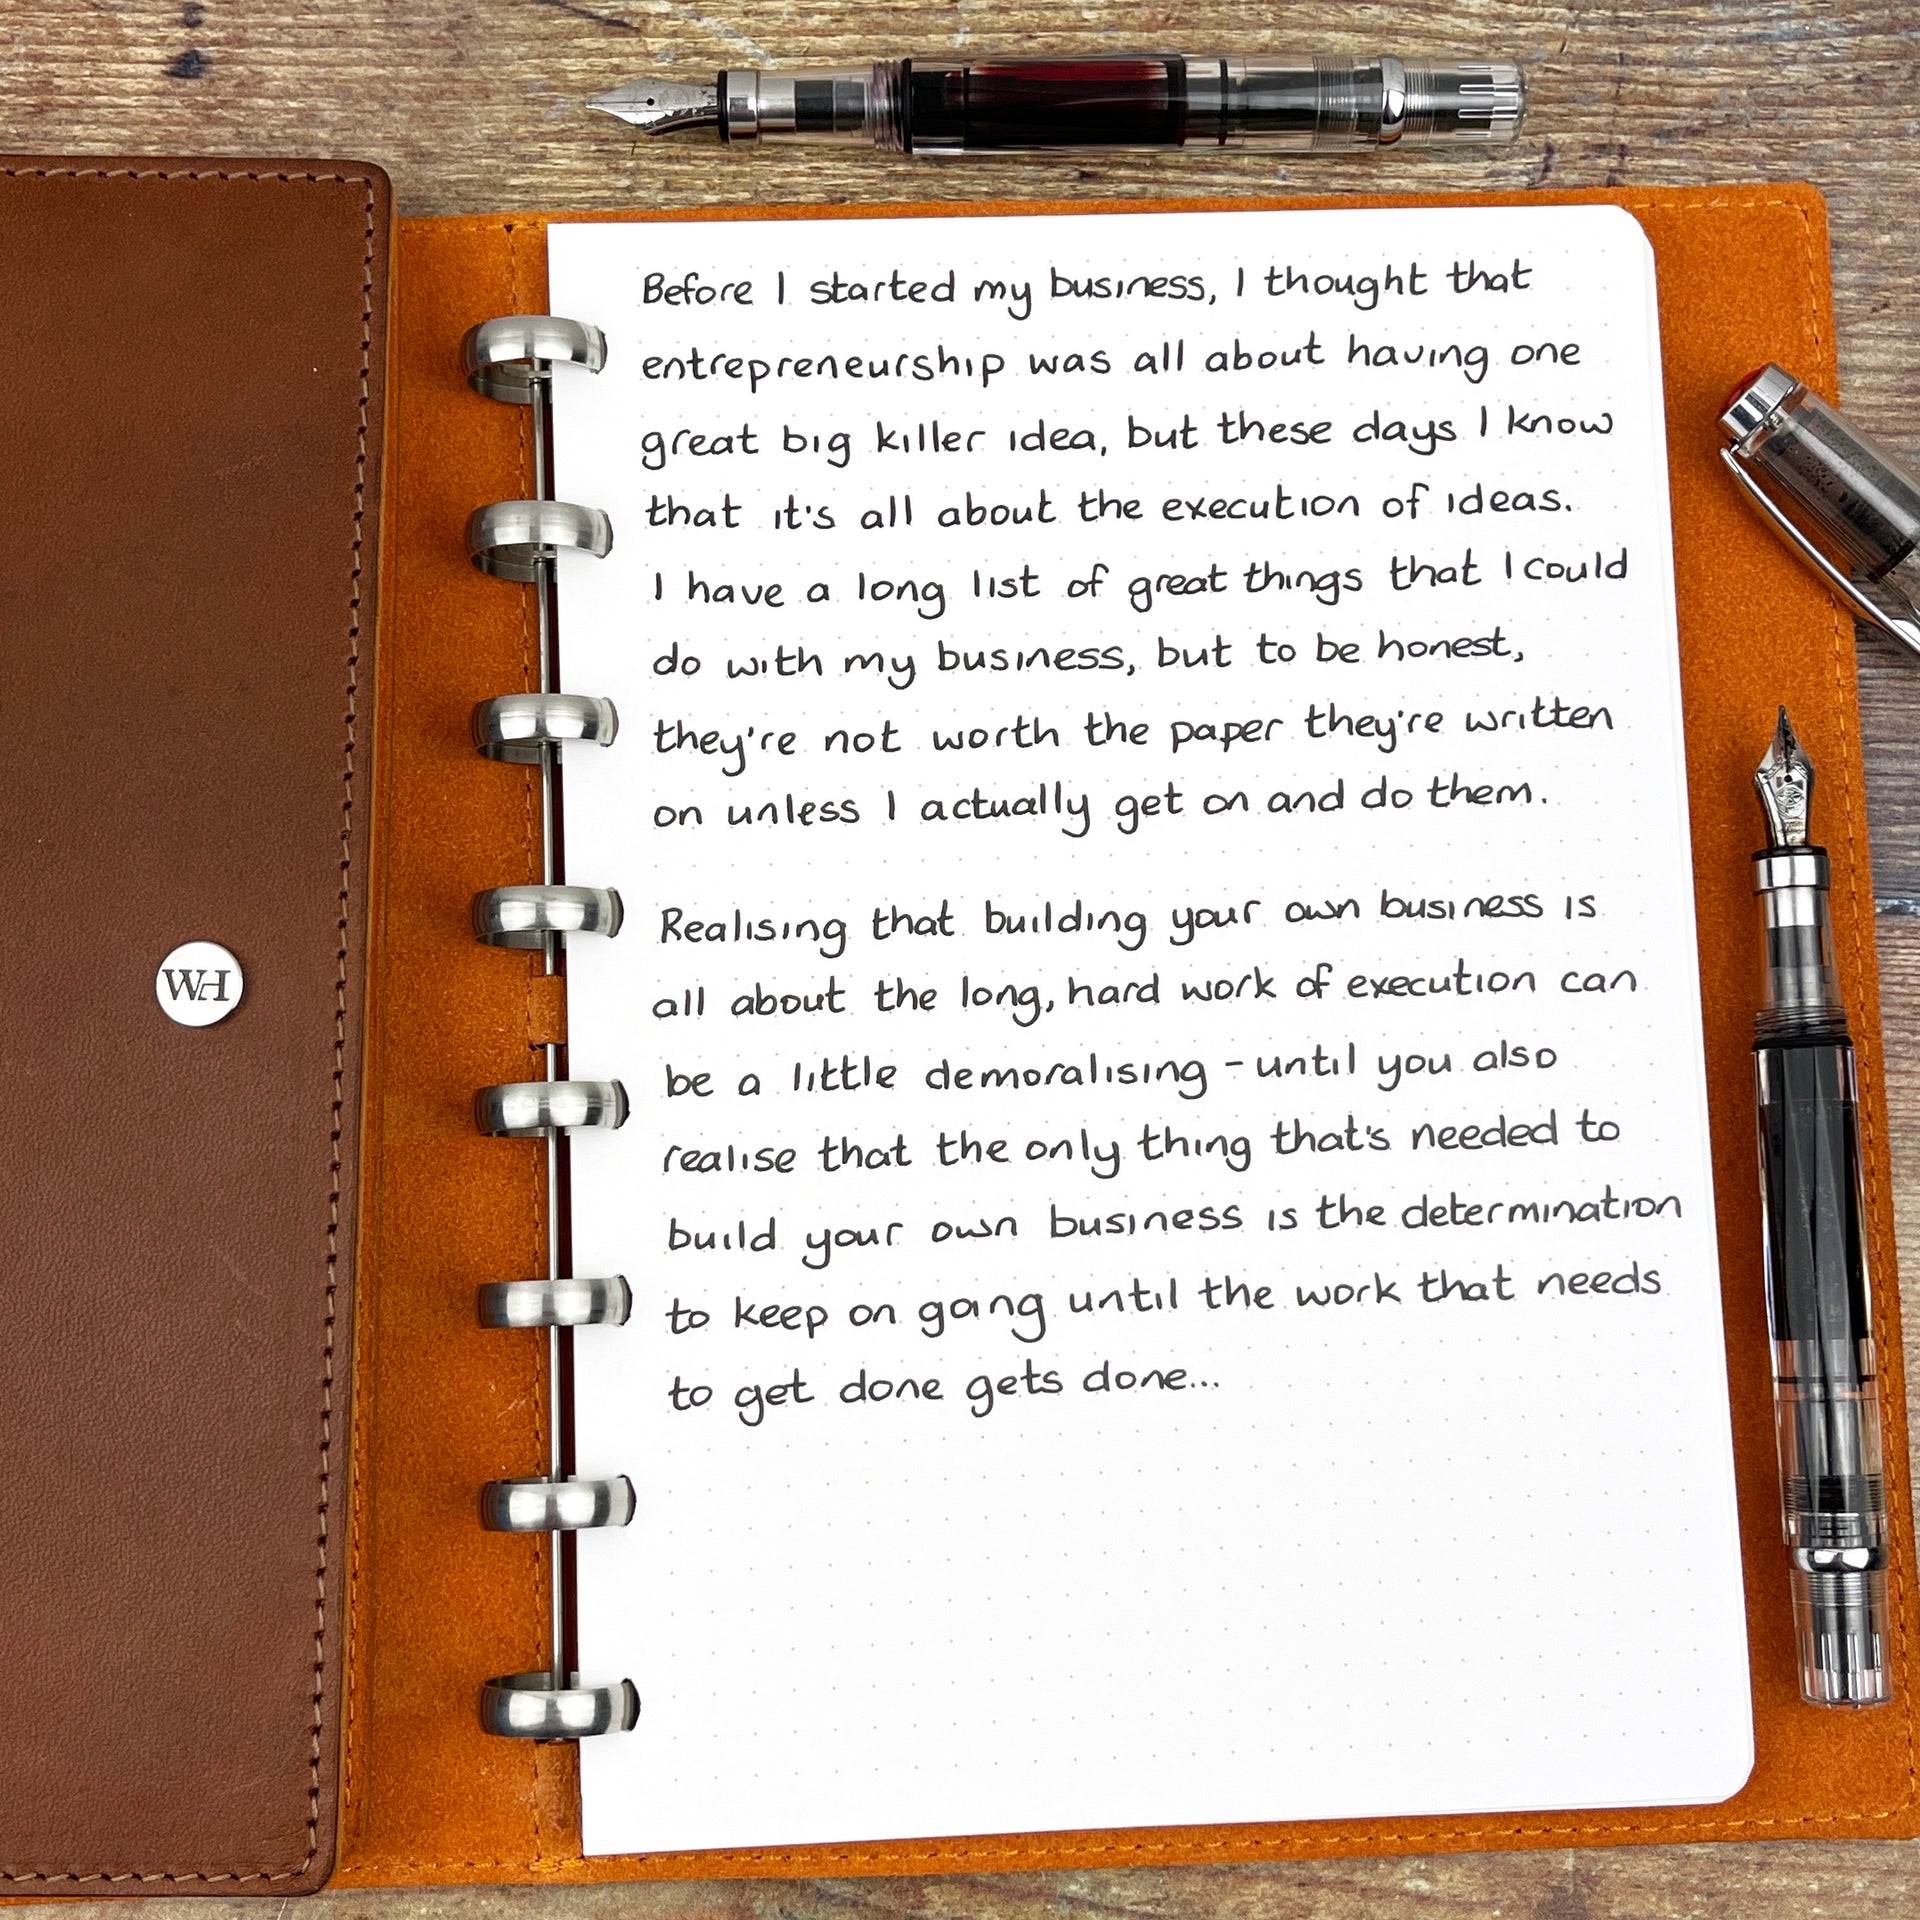 WH
Before I started my business, I thought that
entrepreneurship was all about having one
great big killer idea, but these days I know
that it's all about the execution of ideas.
I have a long list of great things that I could
do with my business, but to be honest,
they're not worth the paper they're written
on unless I actually get on and do them.
Realising that building your own business is
all about the long, hard work of execution can
be a little demoralising - until you also
realise that the only thing that's needed to
build your own business is the determination
to keep on going until the work that needs
to get done gets done...